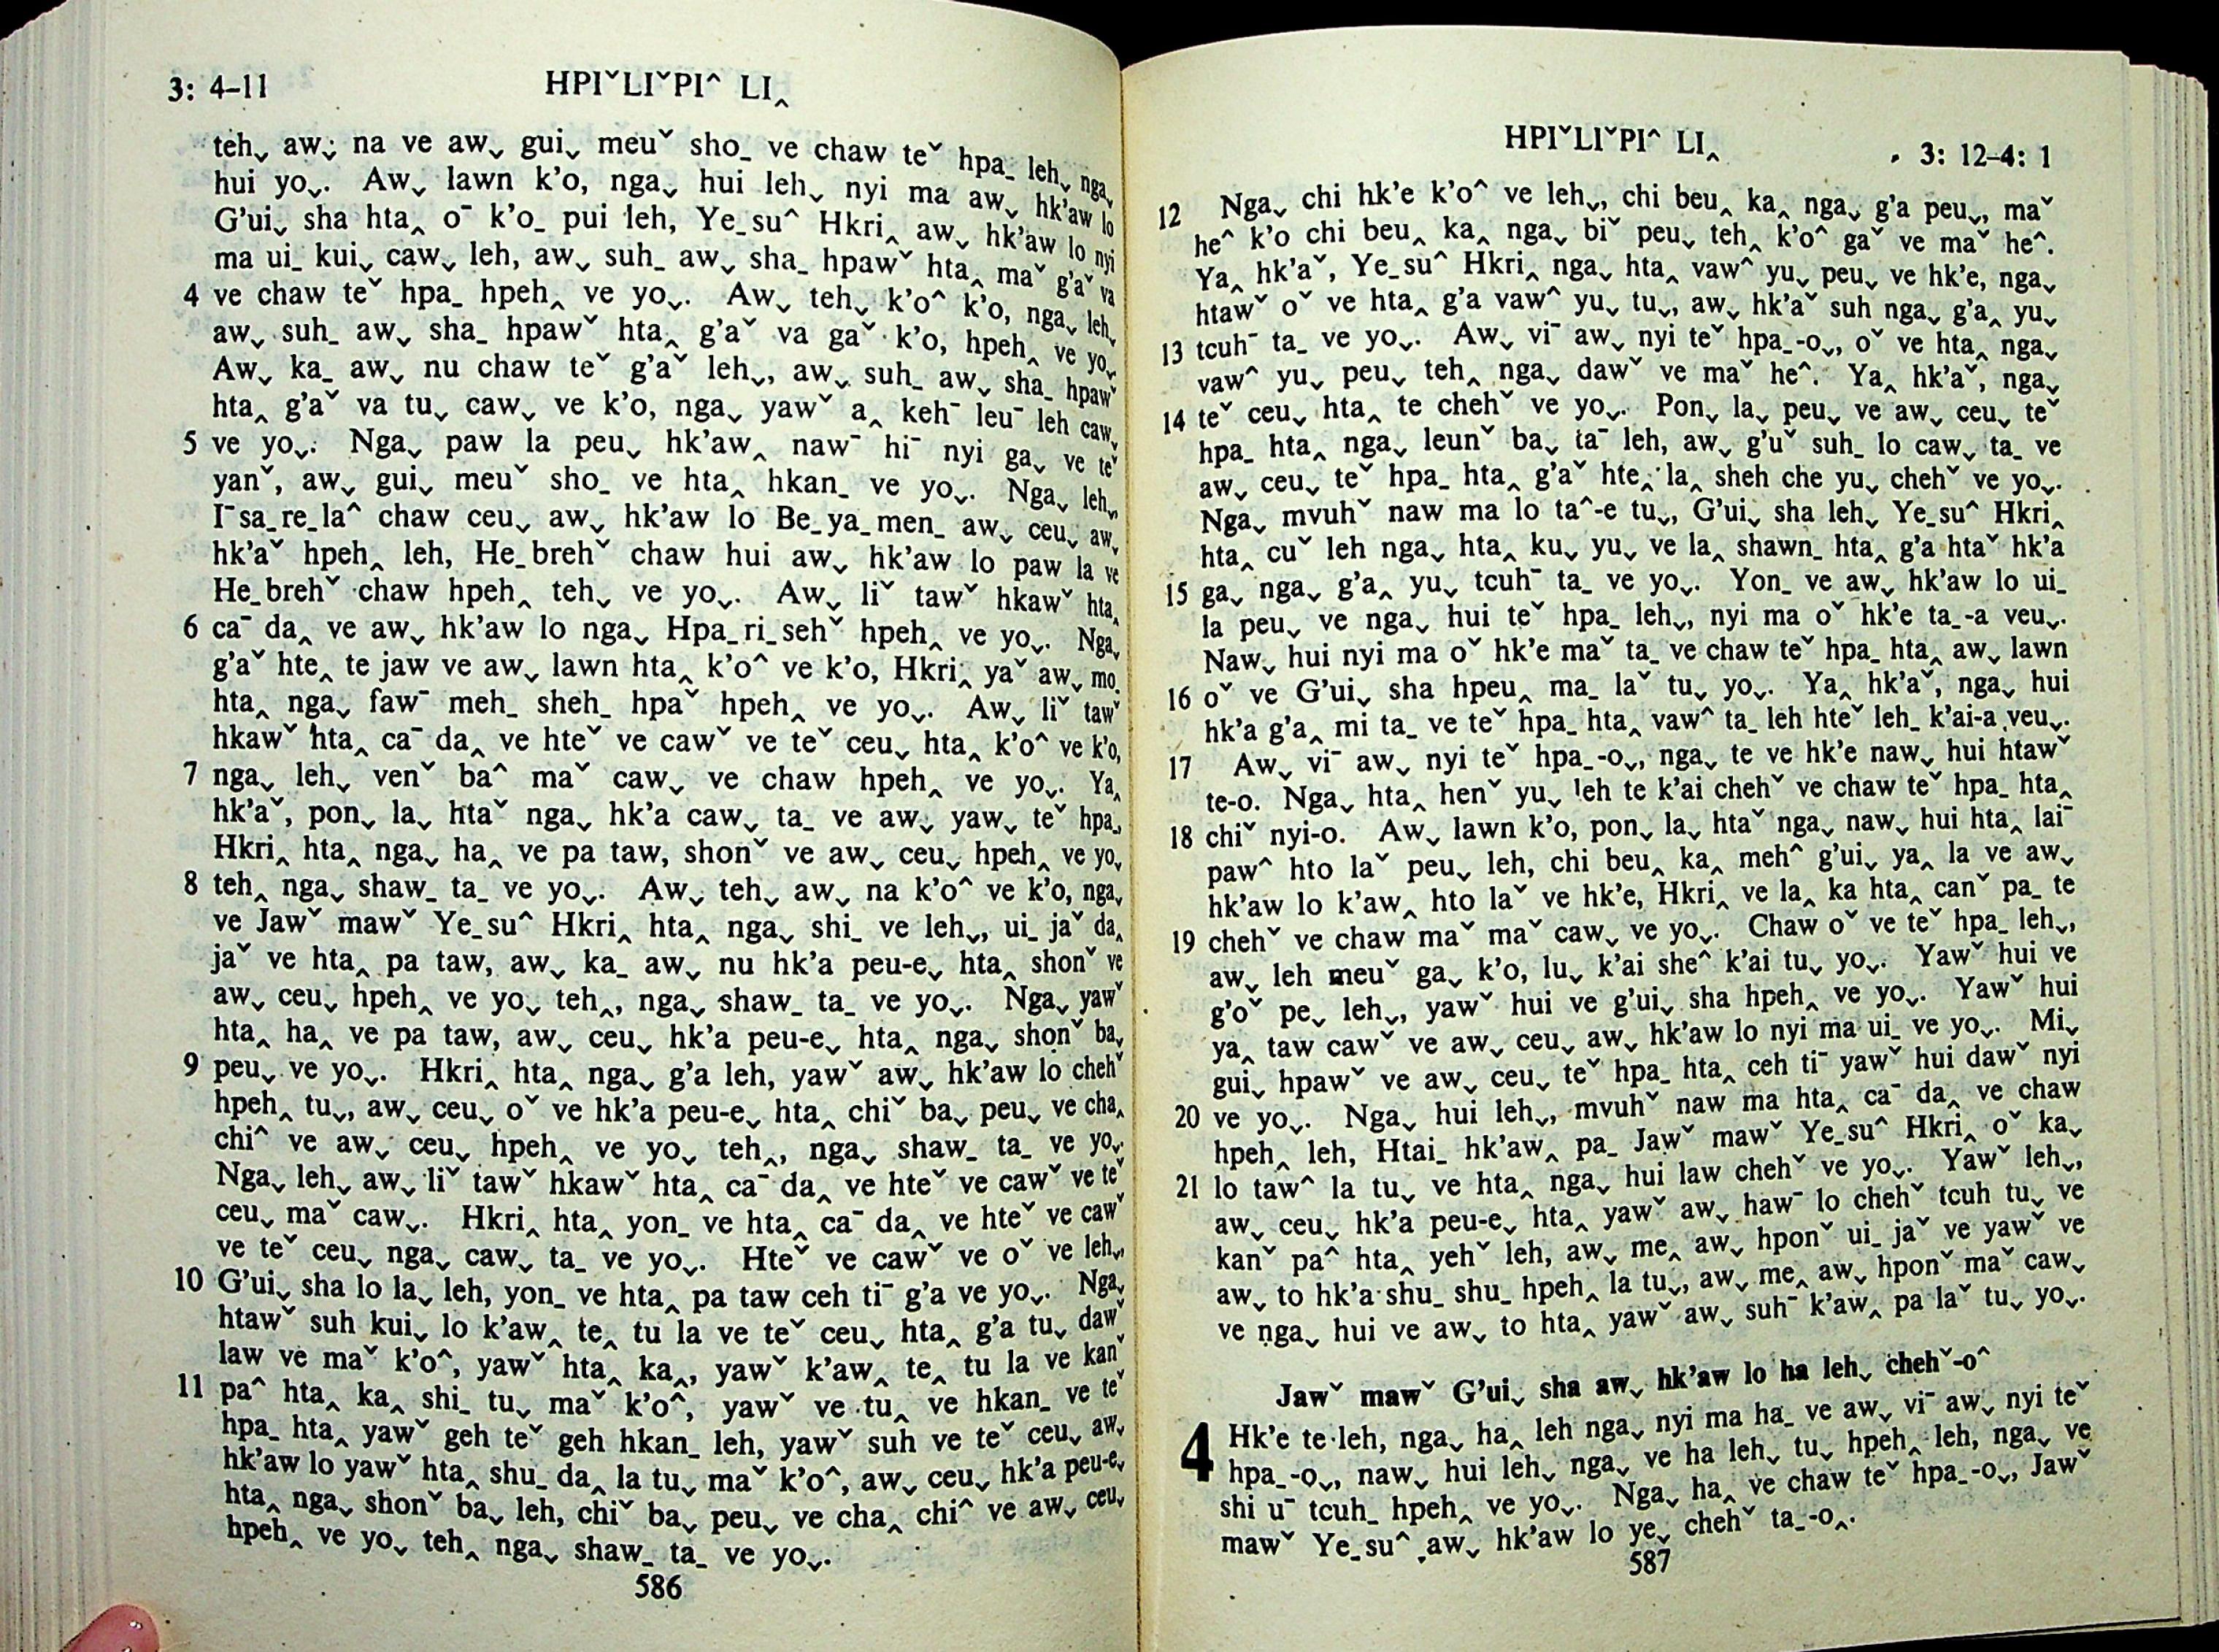 3: 4–11
HPIˇLIˇPIˆ LI‸
teh˯ aw˯ na ve aw˯ gui˯ meuˇ sho_ ve chaw teˇ hpa_ leh˯ nga˯
hui yo˯. Aw˯ lawn k’o, nga˯ hui leh˯ nyi ma aw˯ hk’aw lo
G’ui˯ sha hta‸ oˉ k’o_ pui leh, Ye_suˆ Hkri‸ aw˯ hk’aw lo nyi
ma ui_ kui˯ caw˯ leh, aw˯ suh_ aw˯ sha_ hpawˇ hta‸ maˇ g’aˇ va
4 ve chaw teˇ hpa_ hpeh‸ ve yo˯. Aw˯ teh˯ k’oˆ k’o, nga˯ leh˯
aw˯ suh_ aw˯ sha_ hpawˇ hta‸ g’aˇ va gaˇ k’o, hpeh‸ ve yo˯
Aw˯ ka_ aw˯ nu chaw teˇ g’aˇ leh˯, aw˯ suh_ aw˯ sha_ hpawˇ
hta‸ g’aˇ va tu˯ caw˯ ve k’o, nga˯ yawˇ a‸ kehˉ leuˉ leh caw˯
5 ve yo˯. Nga˯ paw la peu˯ hk’aw‸ nawˉ hiˉ nyi ga˯ ve teˇ
yanˇ, aw˯ gui˯ meuˇ sho_ ve hta‸ hkan_ ve yo˯. Nga˯ leh˯
Iˉsa_re_laˆ chaw ceu˯ aw˯ hk’aw lo Be_ya_men_ aw˯ ceu˯ aw˯
hk’aˇ hpeh‸ leh, He_brehˇ chaw hui aw˯ hk’aw lo paw la ve
He_brehˇ chaw hpeh‸ teh˯ ve yo˯. Aw˯ liˇ tawˇ hkawˇ hta‸
6 caˉ da‸ ve aw˯ hk’aw lo nga˯ Hpa_ri_sehˇ hpeh‸ ve yo˯. Nga˯
g’aˇ hte‸ te jaw ve aw˯ lawn hta‸ k’oˆ ve k’o, Hkri‸ yaˇ aw˯ mo_
hta‸ nga˯ fawˉ meh_ sheh_ hpaˇ hpeh‸ ve yo˯. Aw˯ liˇ tawˇ
hkawˇ hta‸ caˉ da‸ ve hteˇ ve cawˇ ve teˇ ceu˯ hta‸ k’oˆ ve k’o,
7 nga˯ leh˯ venˇ baˆ maˇ caw˯ ve chaw hpeh‸ ve yo˯. Ya‸
hk’aˇ, pon˯ la˯ htaˇ nga˯ hk’a caw˯ ta_ ve aw˯ yaw˯ teˇ hpa_,
Hkri‸ hta‸ nga˯ ha‸ ve pa taw, shonˇ ve aw˯ ceu˯ hpeh‸ ve yo˯
8 teh‸ nga˯ shaw_ ta_ ve yo˯. Aw˯ teh˯ aw˯ na k’oˆ ve k’o, nga˯
ve Jawˇ mawˇ Ye_suˆ Hkri‸ hta‸ nga˯ shi_ ve leh˯, ui_ jaˇ da‸
jaˇ ve hta‸ pa taw, aw˯ ka_ aw˯ nu hk’a peu-e˯ hta‸ shonˇ ve
aw˯ ceu˯ hpeh‸ ve yo˯ teh‸, nga˯ shaw_ ta_ ve yo˯. Nga˯ yawˇ
hta‸ ha‸ ve pa taw, aw˯ ceu˯ hk’a peu-e˯ hta‸ nga˯ shonˇ ba˯
9 peu˯ ve yo˯. Hkri‸ hta‸ nga˯ g’a leh, yawˇ aw˯ hk’aw lo chehˇ
hpeh‸ tu˯, aw˯ ceu˯ oˇ ve hk’a peu-e˯ hta‸ chiˇ ba˯ peu˯ ve cha‸
chiˆ ve aw˯ ceu˯ hpeh‸ ve yo˯ teh‸, nga˯ shaw_ ta_ ve yo˯.
Nga˯ leh˯ aw˯ liˇ tawˇ hkawˇ hta‸ caˉ da‸ ve hteˇ ve cawˇ ve teˇ
ceu˯ maˇ caw˯. Hkri‸ hta‸ yon_ ve hta‸ caˉ da‸ ve hteˇ ve cawˇ
ve teˇ ceu˯ nga˯ caw˯ ta_ ve yo˯. Hteˇ ve cawˇ ve oˇ ve leh˯,
10 G’ui˯ sha lo la˯ leh, yon_ ve hta‸ pa taw ceh tiˉ g’a ve yo˯. Nga˯
htawˇ suh kui˯ lo k’aw‸ te‸ tu la ve teˇ ceu˯ hta‸ g’a tu˯ dawˇ
law ve maˇ k’oˆ, yawˇ hta‸ ka‸, yawˇ k’aw‸ te‸ tu la ve kanˇ
11 paˆ hta‸ ka‸ shi_ tu˯ maˇ k’oˆ, yawˇ ve tu‸ ve hkan_ ve teˇ
hpa_ hta‸ yawˇ geh teˇ geh hkan_ leh, yawˇ suh ve teˇ ceu˯ aw˯
hk’aw lo yawˇ hta‸ shu_ da‸ la tu˯ maˇ k’oˆ, aw˯ ceu˯ hk’a peu-e˯
hta‸ nga˯ shonˇ ba˯ leh, chiˇ ba˯ peu˯ ve cha‸ chiˆ ve aw˯ ceu˯
hpeh‸ ve yo˯ teh‸ nga˯ shaw_ ta_ ve yo˯.
586
HPIˇLIˇPIˆ LI‸
3: 12–4: 1
12 Nga˯ chi hk’e k’oˆ ve leh˯, chi beu‸ ka‸ nga˯ g’a peu˯, maˇ
heˆ k’o chi beu‸ ka‸ nga˯ biˇ peu˯ teh‸ k’oˆ gaˇ ve maˇ heˆ.
Ya‸ hk’aˇ, Ye_suˆ Hkri‸ nga˯ hta‸ vawˆ yu˯ peu˯ ve hk’e, nga˯
htawˇ oˇ ve hta‸ g’a vawˆ yu˯ tu˯, aw˯ hk’aˇ suh nga˯ g’a‸ yu˯
13 tcuhˉ ta_ ve yo˯. Aw˯ viˉ aw˯ nyi teˇ hpa_-o˯, oˇ ve hta‸ nga˯
vawˆ yu˯ peu˯ teh‸ nga˯ dawˇ ve maˇ heˆ. Ya‸ hk’aˇ, nga˯
14 teˇ ceu˯ hta‸ te chehˇ ve yo˯. Pon˯ la˯ peu˯ ve aw˯ ceu˯ teˇ
hpa_ hta‸ nga˯ leunˇ ba˯ taˉ leh, aw˯ g’uˇ suh_ lo caw˯ ta_ ve
aw˯ ceu˯ teˇ hpa_ hta‸ g’aˇ hte‸ la‸ sheh che yu˯ chehˇ ve yo˯.
Nga˯ mvuhˇ naw ma lo taˆ-e tu˯, G’ui˯ sha leh˯ Ye_suˆ Hkri‸
hta‸ cuˇ leh nga˯ hta‸ ku˯ yu˯ ve la‸ shawn_ hta‸ g’a htaˇ hk’a
15 ga˯ nga˯ g’a‸ yu˯ tcuhˉ ta_ ve yo˯. Yon_ ve aw˯ hk’aw lo ui_
la peu˯ ve nga˯ hui teˇ hpa_ leh˯, nyi ma oˇ hk’e ta_-a veu˯.
Naw˯ hui nyi ma oˇ hk’e maˇ ta_ ve chaw teˇ hpa_ hta‸ aw˯ lawn
16 oˇ ve G’ui˯ sha hpeu‸ ma_ laˇ tu˯ yo˯. Ya‸ hk’aˇ, nga˯ hui
hk’a g’a‸ mi ta_ ve teˇ hpa_ hta‸ vawˆ ta_ leh hteˇ leh_ k’ai-a veu˯.
17 Aw˯ viˉ aw˯ nyi teˇ hpa_-o˯, nga˯ te ve hk’e naw˯ hui htawˇ
te-o. Nga˯ hta‸ henˇ yu˯ leh te k’ai chehˇ ve chaw teˇ hpa_ hta‸
18 chiˇ nyi-o. Aw˯ lawn k’o, pon˯ la˯ htaˇ nga˯ naw˯ hui hta‸ laiˉ
pawˆ hto laˇ peu˯ leh, chi beu‸ ka‸ mehˆ g’ui˯ ya‸ la ve aw˯
hk’aw lo k’aw‸ hto laˇ ve hk’e, Hkri‸ ve la‸ ka hta‸ canˇ pa_ te
19 chehˇ ve chaw maˇ maˇ caw˯ ve yo˯. Chaw oˇ ve teˇ hpa_ leh˯,
aw˯ leh meuˇ ga˯ k’o, lu˯ k’ai sheˆ k’ai tu˯ yo˯. Yawˇ hui ve
g’oˇ pe˯ leh˯, yawˇ hui ve g’ui˯ sha hpeh‸ ve yo˯. Yawˇ hui
ya‸ taw cawˇ ve aw˯ ceu˯ aw˯ hk’aw lo nyi ma ui_ ve yo˯. Mi˯
gui˯ hpawˇ ve aw˯ ceu˯ teˇ hpa_ hta‸ ceh tiˉ yawˇ hui dawˇ nyi
20 ve yo˯. Nga˯ hui leh˯, mvuhˇ naw ma hta‸ caˉ da‸ ve chaw
hpeh‸ leh, Htai_ hk’aw‸ pa_ Jawˇ mawˇ Ye_suˆ Hkri‸ oˇ ka˯
21 lo tawˆ la tu˯ ve hta‸ nga˯ hui law chehˇ ve yo˯. Yawˇ leh˯,
aw˯ ceu˯ hk’a peu-e˯ hta‸ yawˇ aw˯ hawˉ lo chehˇ tcuh tu˯ ve
kanˇ paˆ hta‸ yehˇ leh, aw˯ me‸ aw˯ hponˇ ui_ jaˇ ve yawˇ ve
aw˯ to hk’a shu_ shu_ hpeh‸ la tu˯, aw˯ me‸ aw˯ hponˇ maˇ caw˯
ve nga˯ hui ve aw˯ to hta‸ yawˇ aw˯ suhˉ k’aw‸ pa laˇ tu˯ yo˯.
Jawˇ mawˇ G’ui˯ sha aw˯ hk’aw lo ha leh˯ chehˇ-oˆ
4 Hk’e te leh, nga˯ ha‸ leh nga˯ nyi ma ha_ ve aw˯ viˉ aw˯ nyi teˇ
hpa_-o˯, naw˯ hui leh˯ nga˯ ve ha leh˯ tu˯ hpeh‸ leh, nga˯ ve
shi uˉ tcuh_ hpeh‸ ve yo˯. Nga˯ ha‸ ve chaw teˇ hpa_-o˯, Jawˇ
mawˇ Ye_suˆ aw˯ hk’aw lo ye˯ chehˇ ta_-o‸.
587